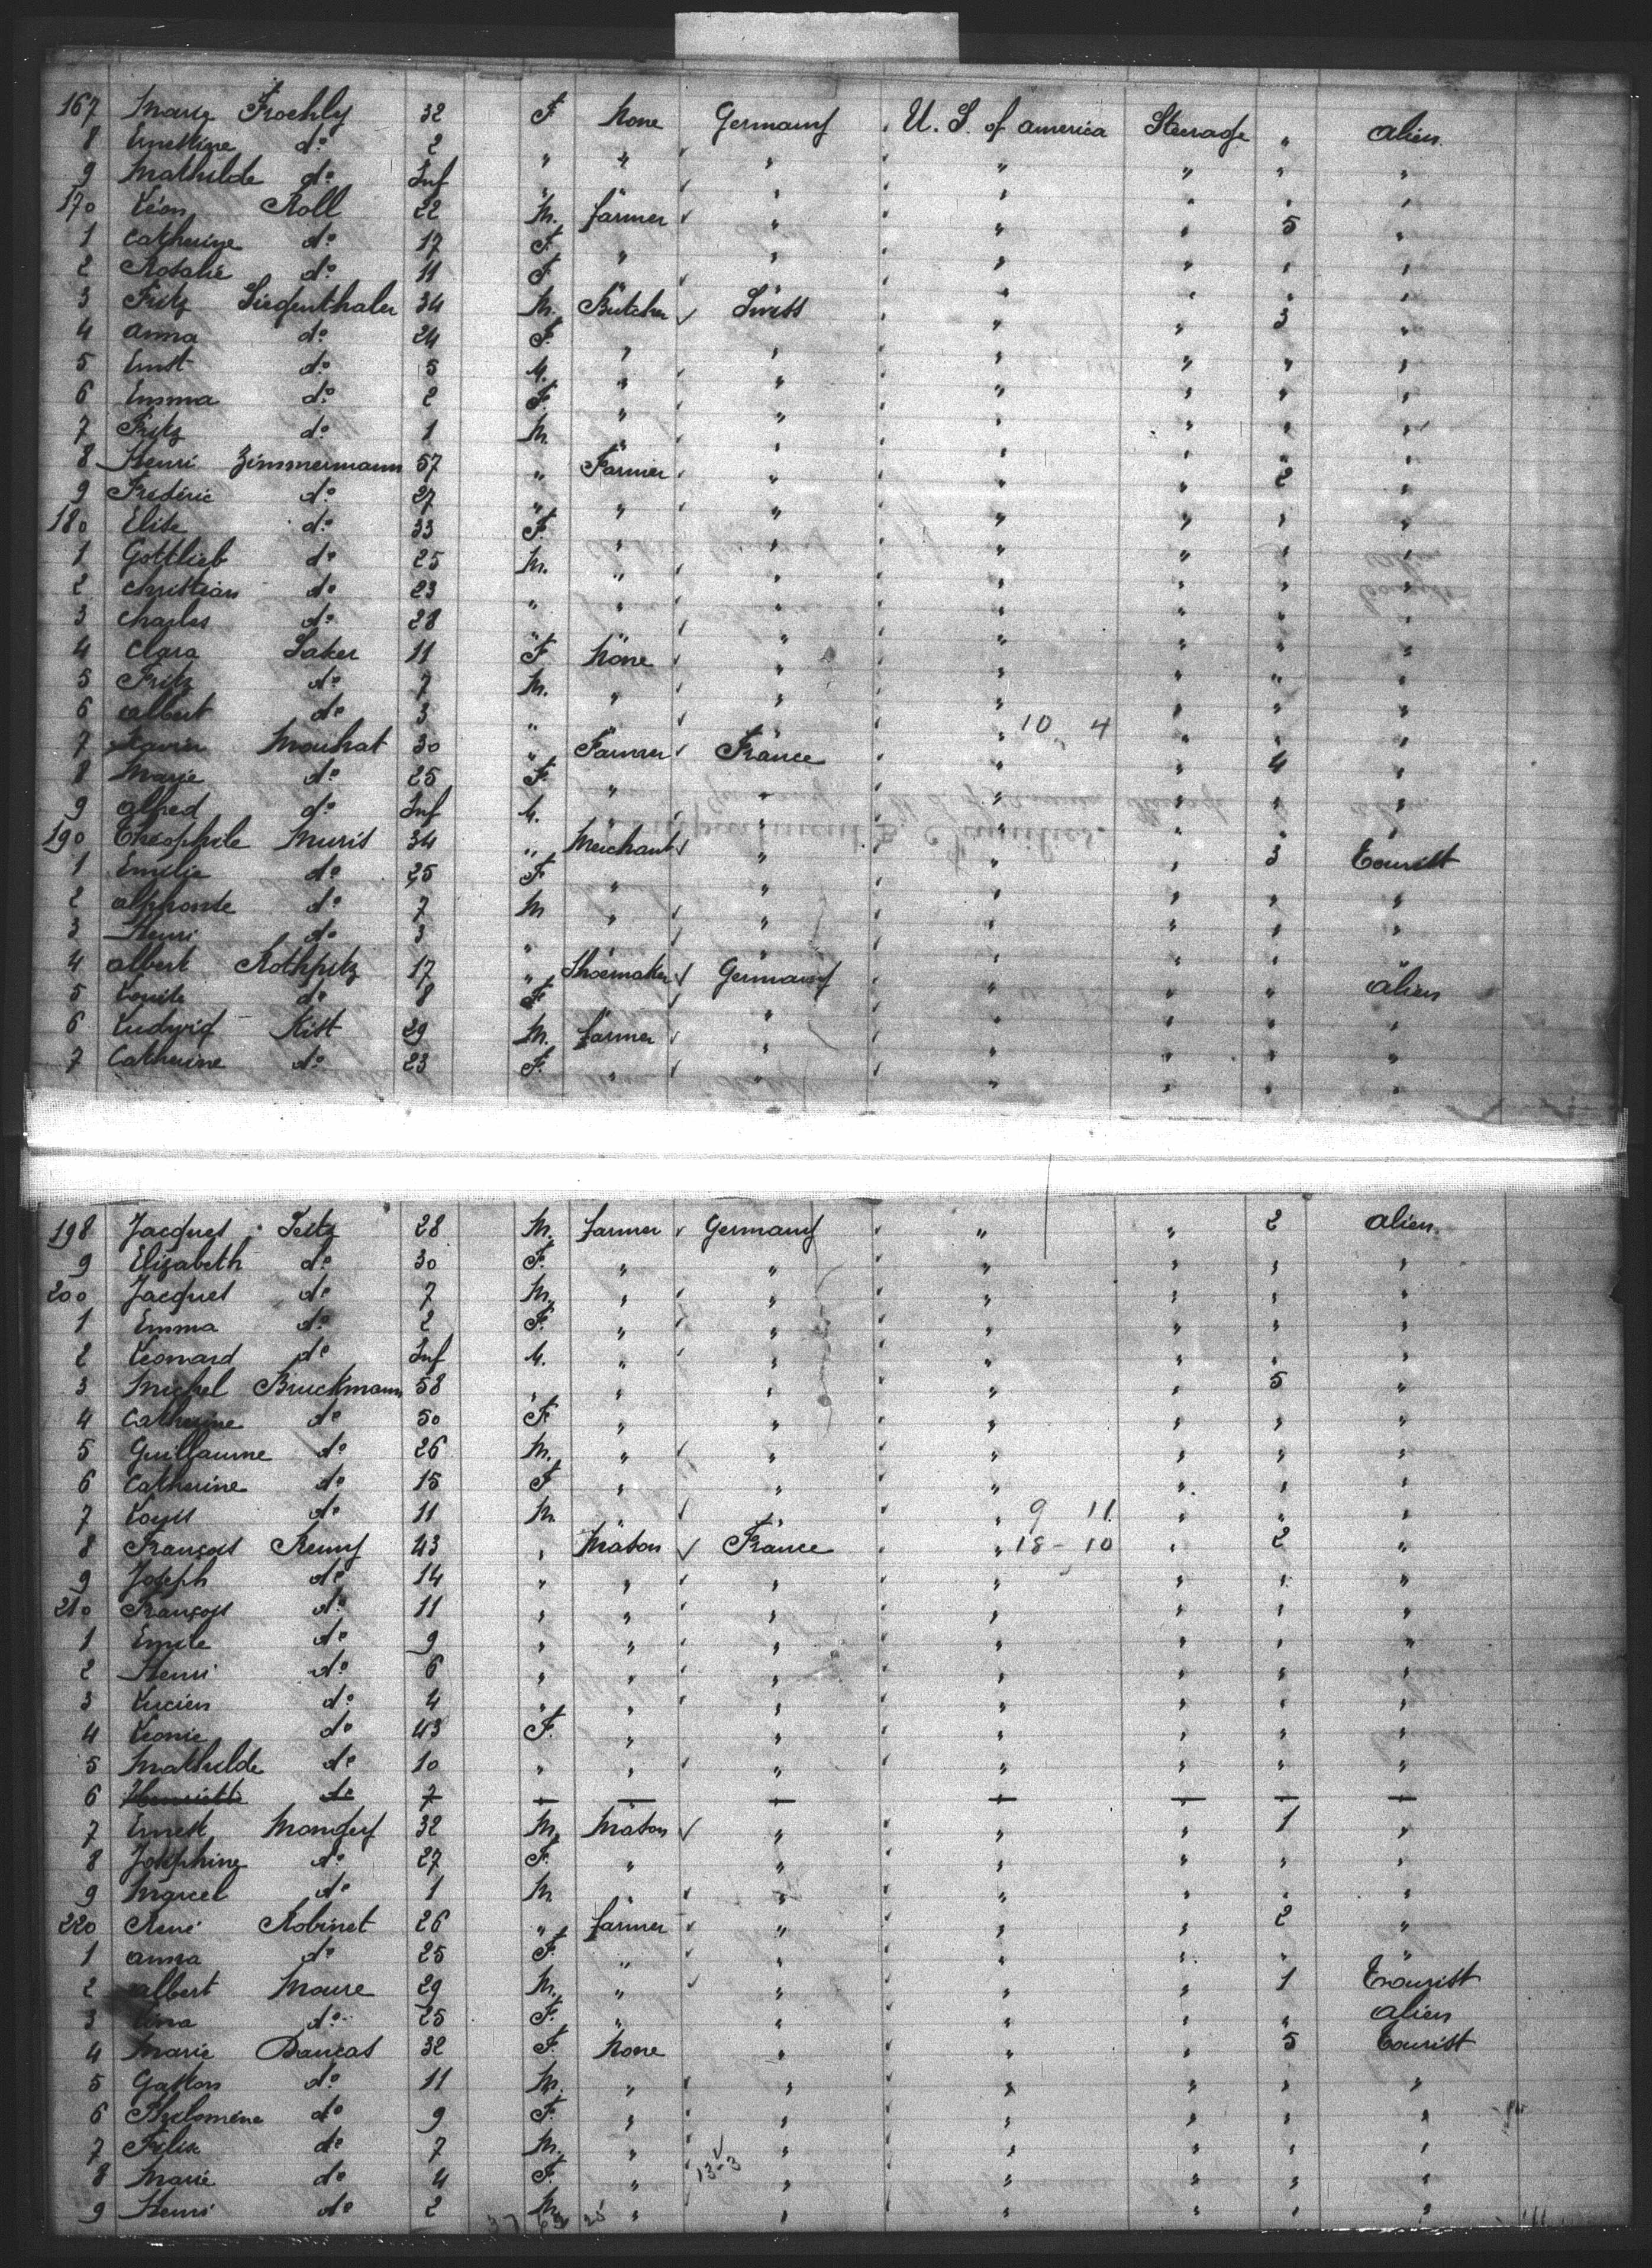 167 Marie Froehly 32 F None Germany U. S. of America Steerage " alien
8 Ernestine do 2 " " " " " " "
9 Mathilde do Inf " " " " " " "
170 Léon Roll 22 M. farmer " " " 5 "
1 Catherine do 17 F. " " " " " "
2 Rosalie do 11 F " " " " " "
3 Fritz Siegenthaler 34 M. Butcher Swiss " " 3 "
4 Anna do 24 F. " " " " " "
5 Ernst do 5 M. " " " " " "
6 Emma do 2 F. " " " " " "
7 Fritz do 1 M " " " " " "
8 Henri Zimmermann 57 " Farmer " " " 2 "
9 Frédéric do 27 " " " " " " "
180 Elise do 33 F. " " " " " "
1 Gottlieb do 25 M. " " " " " "
2 Christian do 23 " " " " " " "
3 Charles do 28 " " " " " " "
4 Clara Saker 11 F None " " " " "
5 Fritz do 7 M. " " " " " "
6 Albert do 3 " " " " 10 4 " " "
7 Mouhat 30 " Farmer France " " 4 "
8 Marie do 25 F. " " " " " "
9 Alfred do Inf M. " " " " " "
190 Théophile Muris 34 " Merchant " " " 3 Tourist
1 Emilie do 25 F " " " " " "
2 Alphonse do 7 M " " " " " "
3 Henri do 3 " " " " " " "
4 Albert Rothpitz 17 " Shoemaker Germany " " " alien
5 Louise do 8 F " " " " " "
6 Ludwig Kist 29 M. farmer " " " " "
7 Catherine do 23 F. " " " " " "
198 Jacques Seitz 28 M. farmer Germany " " 2 alien
9 Elizabeth do 30 F. " " " " " "
200 Jacques do 7 M. " " " " " "
1 Emma do 2 F. " " " " " "
2 Leonard do Inf M. " " " " " "
3 Michel Bruckmann 58 " " " " " 5 "
4 Catherine do 50 F. " " " " " "
5 Guillaume do 26 M. " " " " " "
6 Catherine do 15 F " " " " " "
7 Louis do 11 M " " " 9 11 " " "
8 François Remy 43 " Mason France " 18 - 10 " 2 "
9 Joseph do 14 " " " " " " "
210 François do 11 " " " " " " "
1 Emile do 9 " " " " " " "
2 Henri do 6 " " " " " " "
3 Lucien do 4 " " " " " " "
4 Leonie do 43 F. " " " " " "
5 Mathilde do 10 " " " " " " "
6 Henriette do 7 — — — — — — —
7 Ernest Mongey 32 M. Mason " " " 1 "
8 Joséphine do 27 F. " " " " " "
9 Marcel do 1 M " " " " " "
220 René Robinet 26 " farmer " " " 2 "
1 Anna do 25 F. " " " " " "
2 Albert Maure 29 M. " " " " 1 Tourist
3 do 25 F. " " " " " alien
4 Marie Dancas 32 F. None " " " 5 Tourist
5 Gaston do 11 M. " " " " " "
6 Philomène do 9 F. " " " " " "
7 Félix do 7 M. " " " " " "
8 Marie do 4 F. " 13-3 " " " " "
9 Henri do 2 M. " " " " " "